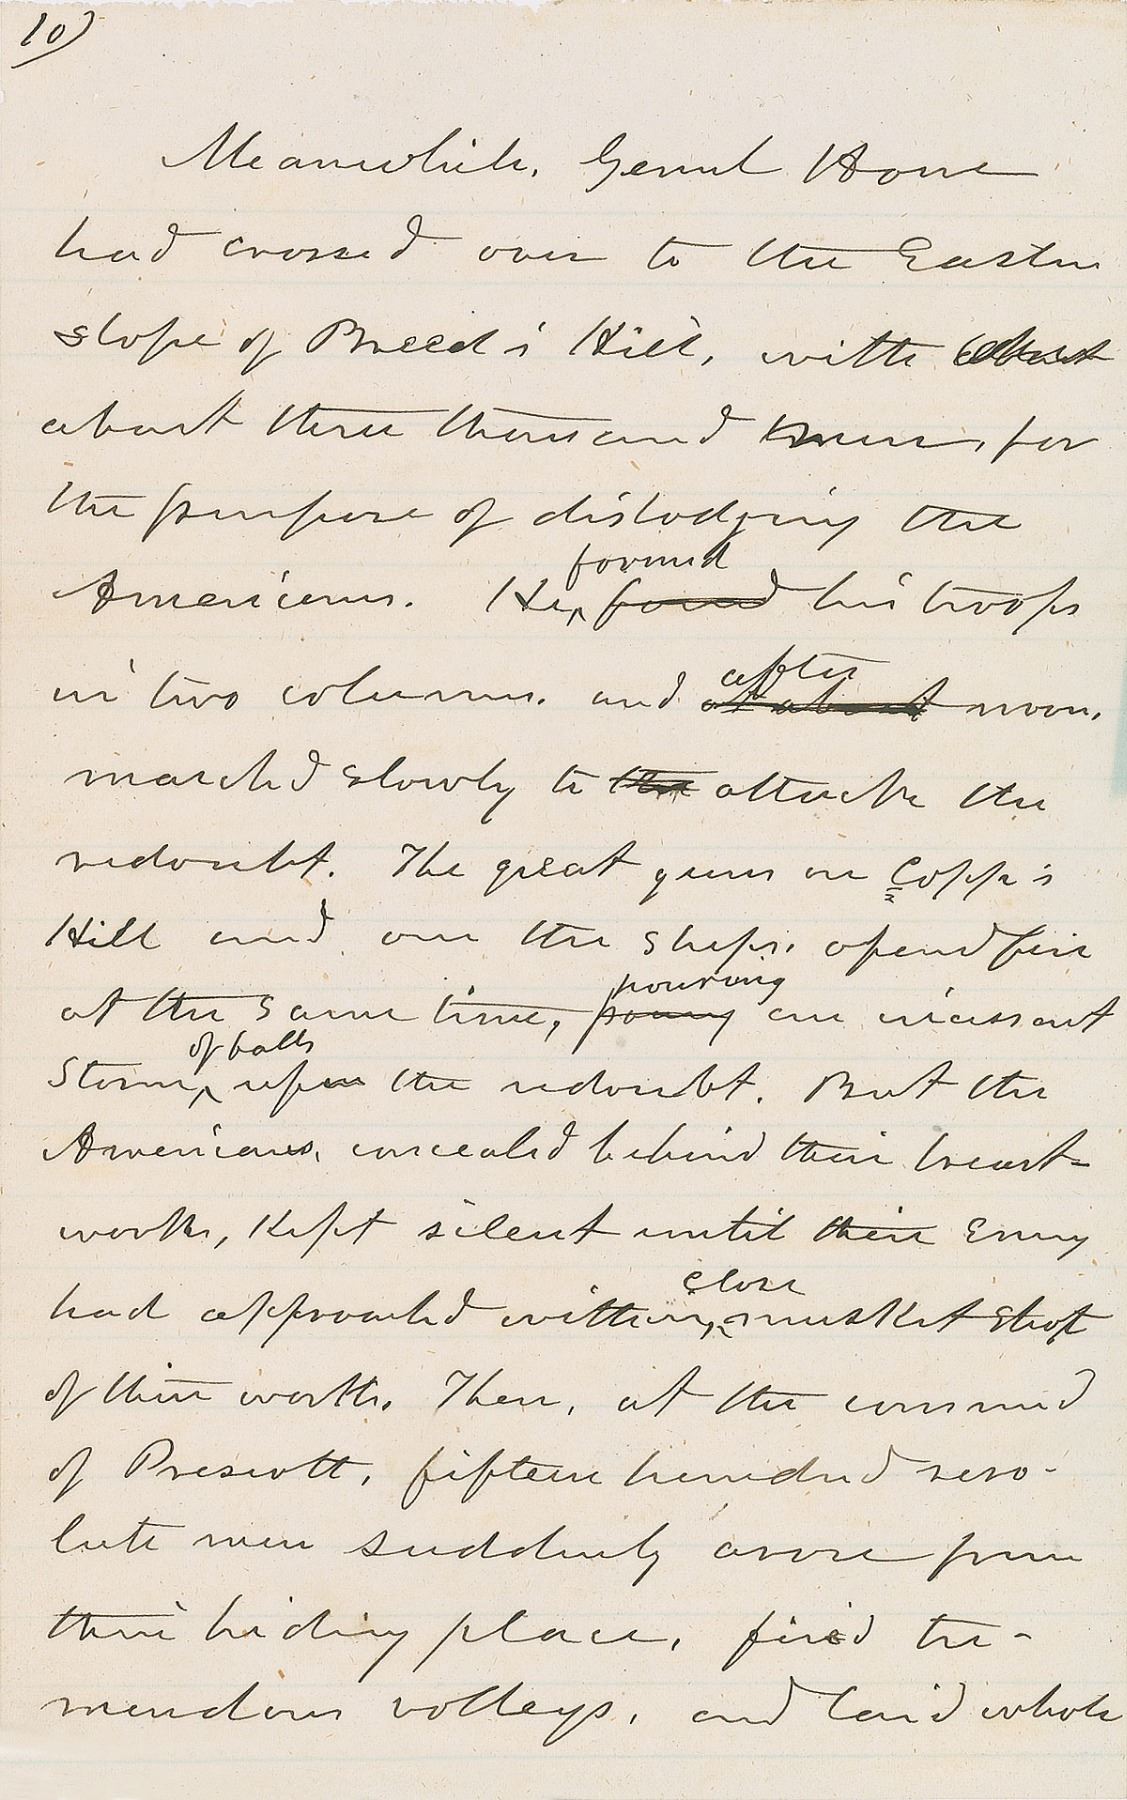 10)
Meanwhile, General Howe
had crossed over to the Eastern
slope of Breed's Hill, with about
about three thousand men, for
the purpose of dislodging the
formed
Americans. He foued his troops
after
in two columns, and at about noon,
marched slowly to the attack the
redoubt. The great guns on Copp's
Hill and on the ships, opened fire
pouring
at the same time, pourng an incessant
of balls
storm upon the redoubt. But the
Americans, concealed behind their breast-
works, kept silent until their enemy
close
had approached within musket shot
of their works. Then, at the command
of Prescott, fifteen hundred reso-
lute men suddenly arose from
their hiding place, fired tre-
mendous volleys, and laid whole